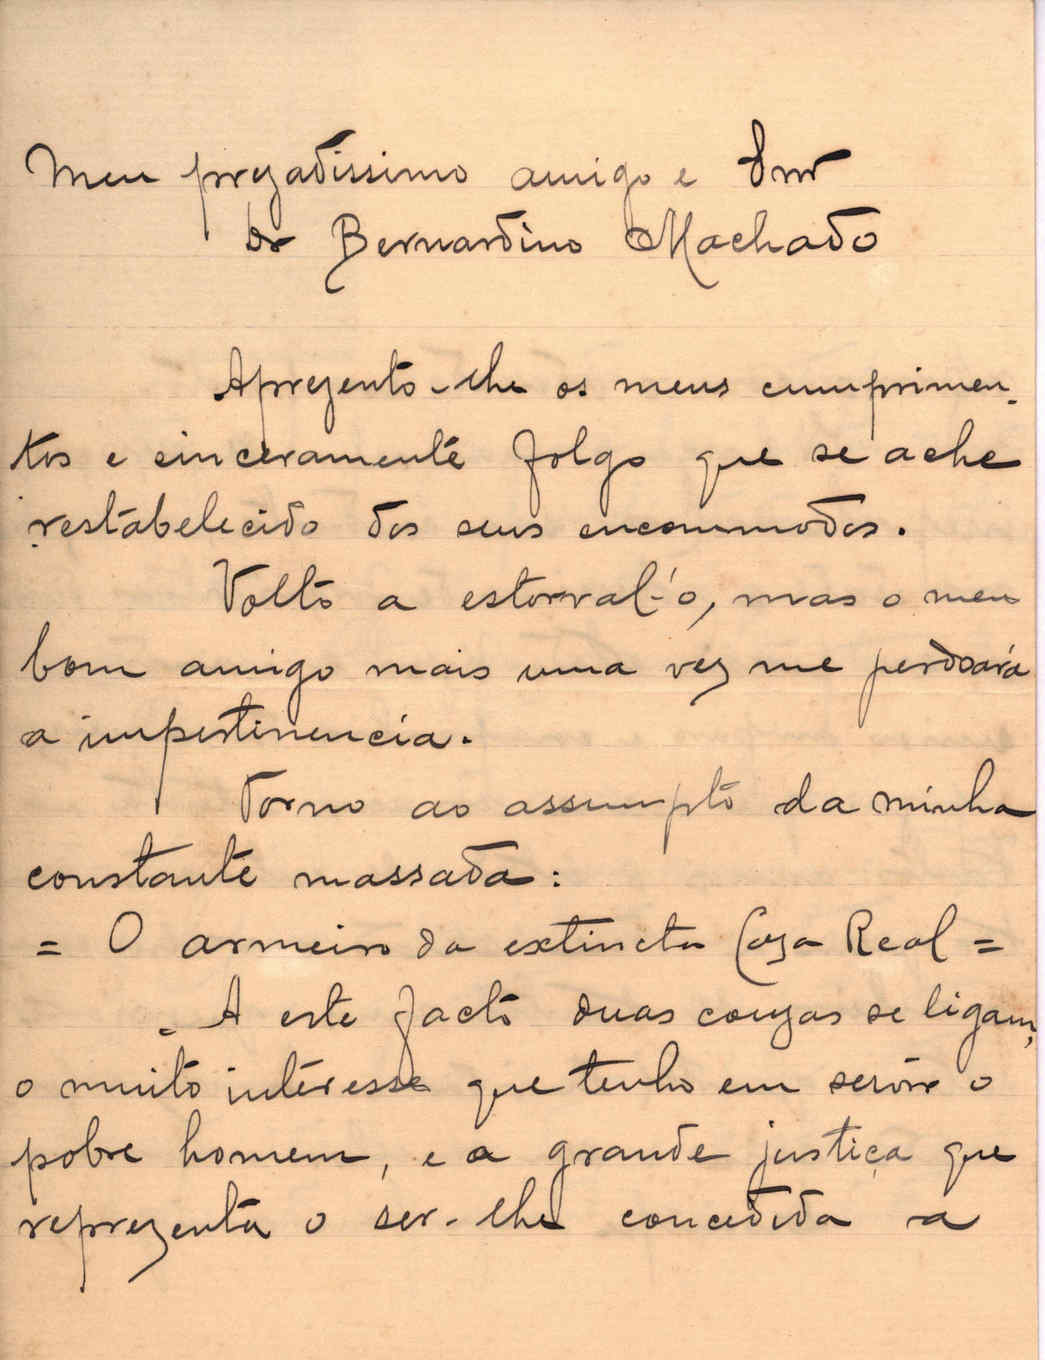 Meu prezadissimo amigo e Snr
Dr Bernardino Machado
Aprezento-lhe os meus cumprimen-
tos e sinceramente folgo que se ache
restabelecido dos seus encommodos.
Volto a estorval-'o, mas o meu
bom amigo mais uma vez me perdoará
a impertinencia.
Torno ao assumpto da minha
constante massada:
= O armeiro da extincta Caza Real =
- A este facto duas couzas se ligam,
o muito interesse que tenho em servir o
pobre homem, e a grande justiça que
reprezenta o ser-lhe concedida a